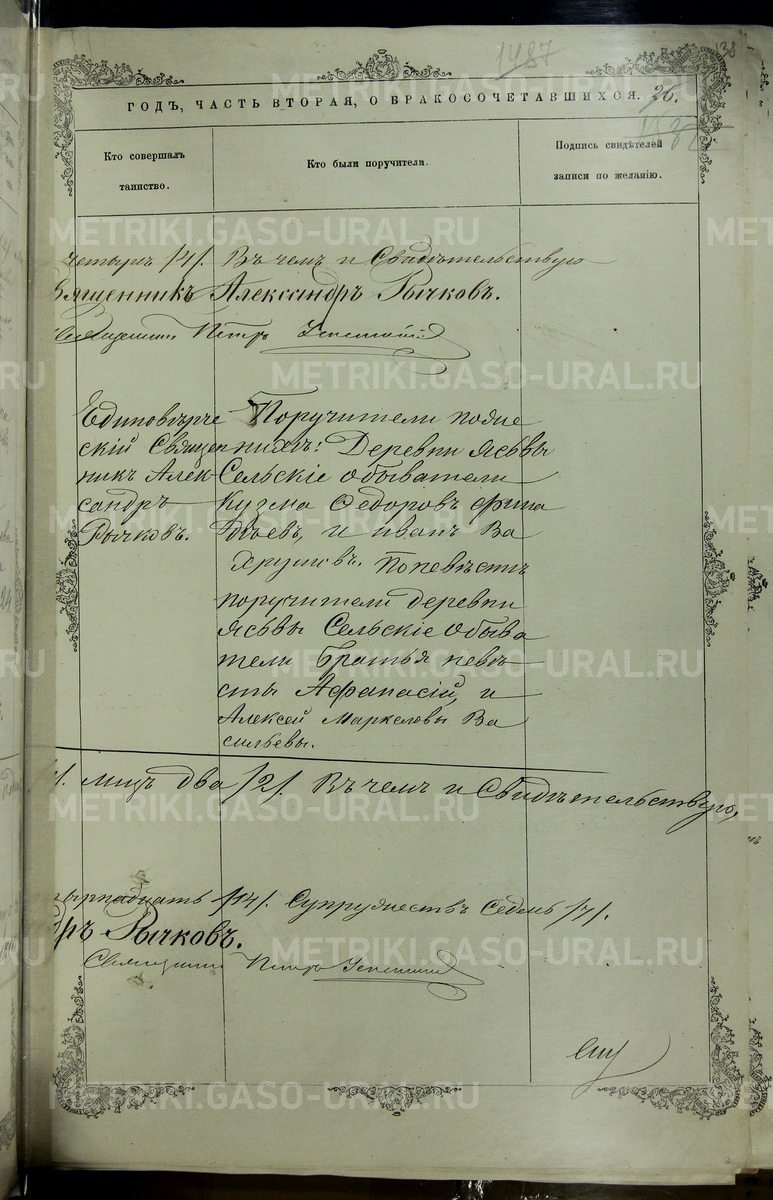 1487
138
ГОДЪ, ЧАСТЬ ВТОРАЯ, О БРАКОСОЧЕТАВШИХСЯ. 26.
Кто совершалъ
таинство.
Кто были поручители.
Подпись свидѣтелей
записи по желанію.
четыре /4/. Въ чемъ и Свидѣтельствую
Священникъ Александръ Рычковъ.
Священникъ Петръ
Единовѣрче
скій Священ
никъ Алек-
сандръ
Рычковъ.
Поручители поже
нихѣ: Деревни Ясьвы
Сельскіе обыватели
Кузма Ѳедоровъ
и иванъ Ва
Попевѣстѣ
поручители деревни
Ясьвы Сельскіе Обыва
тели Братья невѣ
сты Афанасій, и
Алексей Маркеловы Ва
сильевы.
лицъ два /2/. Въ чемъ и Свидѣтельствую,
тырнадцать /14/. Супружествъ Седмь /7/.
дръ Рычковъ.
Священникъ Петръ
METRIKI.GASO-URAL.RU